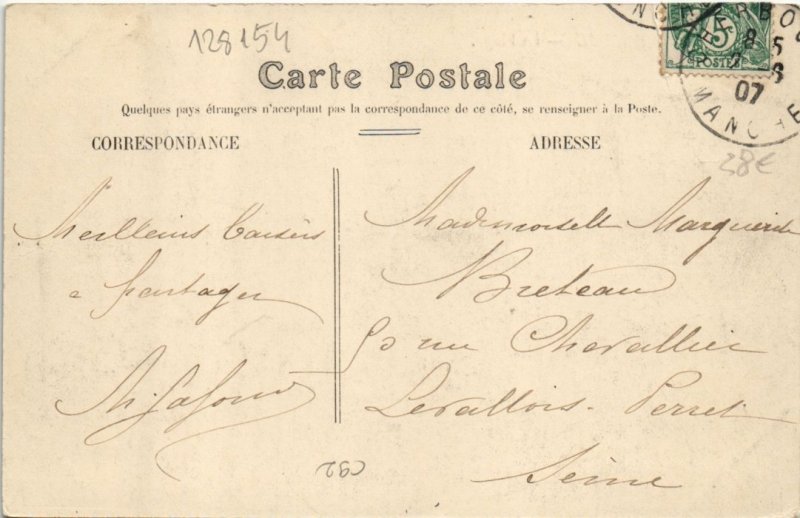 128154
Carte Postale
Quelques pays étrangers n'acceptant pas la correspondance de ce côté, se renseigner à la Poste.
CORRESPONDANCE
Meilleurs baisers
a partager
ADRESSE
Mademoiselle Marguerite
Breteau
rue Chevallier
Levallois-Perret
Seine
5
POSTES
07
MANCHE
28€
C92